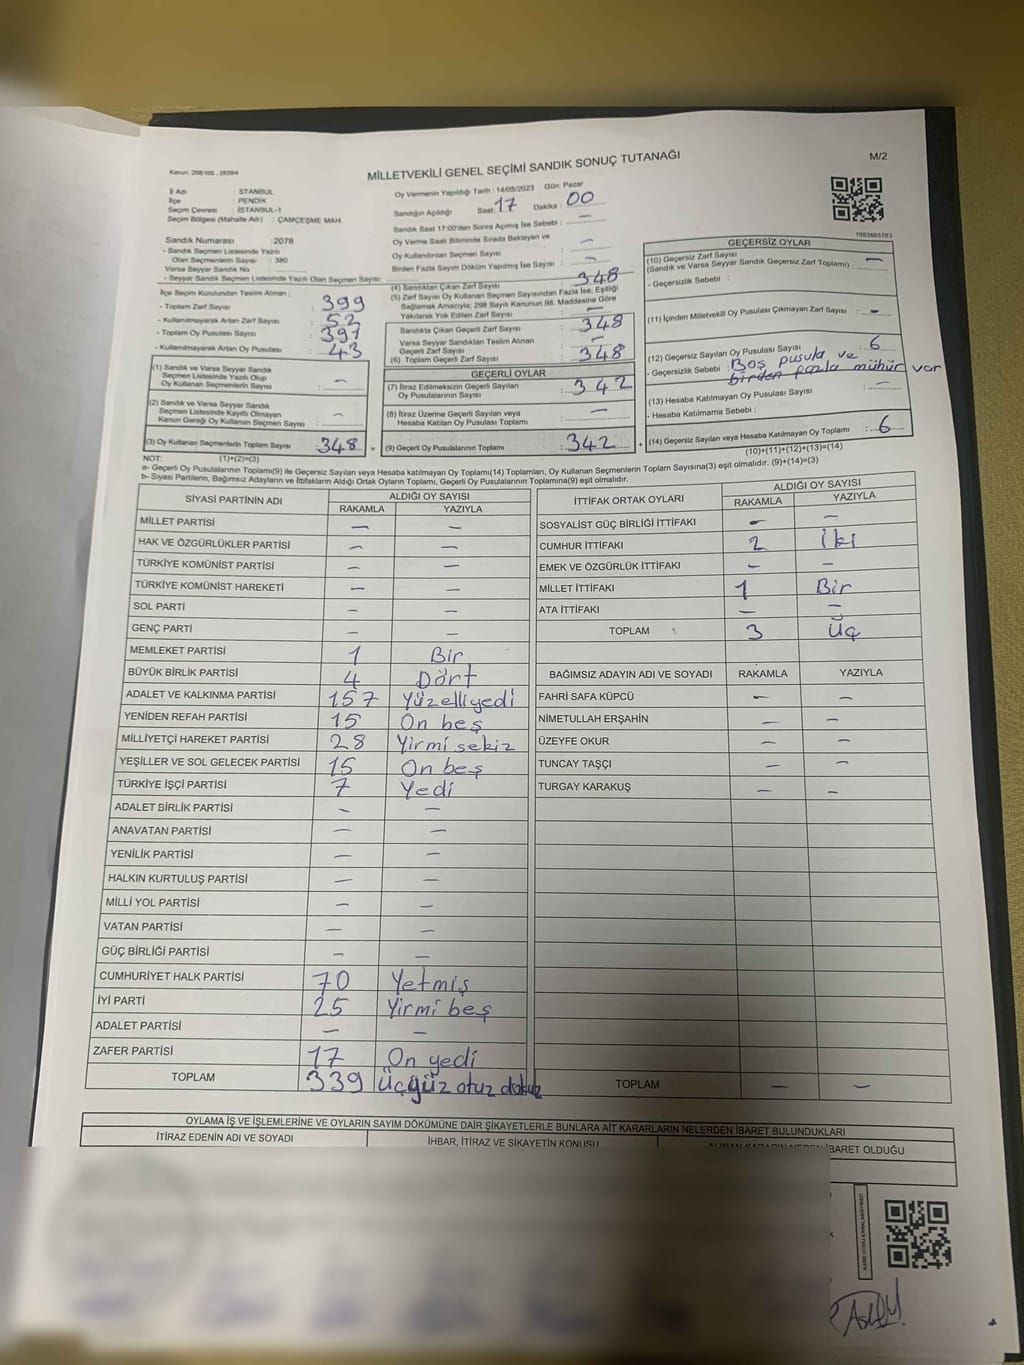 Kanun, 298/105 , 2839/4
MİLLETVEKİLİ GENEL SEÇİMİ SANDIK SONUÇ TUTANAĞI
M/2
İl Adı : İSTANBUL
İlçe : PENDİK
Seçim Çevresi : İSTANBUL-1
Seçim Bölgesi (Mahalle Adı) : ÇAMÇEŞME MAH.
Sandık Numarası : 2078
- Sandık Seçmen Listesinde Yazılı
Olan Seçmenlerin Sayısı : 380
Varsa Seyyar Sandık No :
- Seyyar Sandık Seçmen Listesinde Yazılı Olan Seçmen Sayısı:
İlçe Seçim Kurulundan Teslim Alınan :
- Toplam Zarf Sayısı : 399
- Kullanılmayarak Artan Zarf Sayısı : 52
- Toplam Oy Pusulası Sayısı : 391
- Kullanılmayarak Artan Oy Pusulası : 43
(1) Sandık ve Varsa Seyyar Sandık
Seçmen Listesinde Yazılı Olup
Oy Kullanan Seçmenlerin Sayısı : –
(2) Sandık ve Varsa Seyyar Sandık
Seçmen Listesinde Kayıtlı Olmayan
Kanun Gereği Oy Kullanan Seçmen Sayısı : –
(3) Oy Kullanan Seçmenlerin Toplam Sayısı : 348 =
Oy Vermenin Yapıldığı Tarih : 14/05/2023 Gün: Pazar
Sandığın Açıldığı Saat: 17 Dakika : 00
Sandık Saat 17:00'den Sonra Açılmış İse Sebebi : –
Oy Verme Saati Bitiminde Sırada Bekleyen ve
Oy Kullandırılan Seçmen Sayısı : –
Birden Fazla Sayım Döküm Yapılmış İse Sayısı : –
(4) Sandıktan Çıkan Zarf Sayısı : 348
(5) Zarf Sayısı Oy Kullanan Seçmen Sayısından Fazla İse, Eşitliği
Sağlamak Amacıyla; 298 Sayılı Kanunun 98. Maddesine Göre
Yakılarak Yok Edilen Zarf Sayısı : –
Sandıkta Çıkan Geçerli Zarf Sayısı : 348
Varsa Seyyar Sandıktan Teslim Alınan
Geçerli Zarf Sayısı : –
(6) Toplam Geçerli Zarf Sayısı : 348
GEÇERLİ OYLAR
(7) İtiraz Edilmeksizin Geçerli Sayılan
Oy Pusulalarının Sayısı : 342
(8) İtiraz Üzerine Geçerli Sayılan veya
Hesaba Katılan Oy Pusulası Toplamı : –
(9) Geçerli Oy Pusulalarının Toplamı : 342 +
1083665783
GEÇERSİZ OYLAR
(10) Geçersiz Zarf Sayısı
(Sandık ve Varsa Seyyar Sandık Geçersiz Zarf Toplamı) : –
- Geçersizlik Sebebi :
(11) İçinden Milletvekili Oy Pusulası Çıkmayan Zarf Sayısı : –
(12) Geçersiz Sayılan Oy Pusulası Sayısı : 6
- Geçersizlik Sebebi : Boş pusula ve
birden fazla mühür var
(13) Hesaba Katılmayan Oy Pusulası Sayısı : –
- Hesaba Katılmama Sebebi :
(14) Geçersiz Sayılan veya Hesaba Katılmayan Oy Toplamı : 6
(10)+(11)+(12)+(13)=(14)
NOT: (1)+(2)=(3)
a- Geçerli Oy Pusulalarının Toplamı(9) ile Geçersiz Sayılan veya Hesaba katılmayan Oy Toplamı(14) Toplamları, Oy Kullanan Seçmenlerin Toplam Sayısına(3) eşit olmalıdır. (9)+(14)=(3)
b- Siyasi Partilerin, Bağımsız Adayların ve İttifakların Aldığı Ortak Oyların Toplamı, Geçerli Oy Pusulalarının Toplamına(9) eşit olmalıdır.
SİYASİ PARTİNİN ADI ALDIĞI OY SAYISI
RAKAMLA YAZIYLA
MİLLET PARTİSİ – –
HAK VE ÖZGÜRLÜKLER PARTİSİ – –
TÜRKİYE KOMÜNİST PARTİSİ – –
TÜRKİYE KOMÜNİST HAREKETİ – –
SOL PARTİ – –
GENÇ PARTİ – –
MEMLEKET PARTİSİ 1 Bir
BÜYÜK BİRLİK PARTİSİ 4 Dört
ADALET VE KALKINMA PARTİSİ 157 Yüzelliyedi
YENİDEN REFAH PARTİSİ 15 On beş
MİLLİYETÇİ HAREKET PARTİSİ 28 Yirmi sekiz
YEŞİLLER VE SOL GELECEK PARTİSİ 15 On beş
TÜRKİYE İŞÇİ PARTİSİ 7 Yedi
ADALET BİRLİK PARTİSİ – –
ANAVATAN PARTİSİ – –
YENİLİK PARTİSİ – –
HALKIN KURTULUŞ PARTİSİ – –
MİLLİ YOL PARTİSİ – –
VATAN PARTİSİ – –
GÜÇ BİRLİĞİ PARTİSİ – –
CUMHURİYET HALK PARTİSİ 70 Yetmiş
İYİ PARTİ 25 Yirmi beş
ADALET PARTİSİ – –
ZAFER PARTİSİ 17 On yedi
TOPLAM 339 üçyüz otuz dokuz
İTTİFAK ORTAK OYLARI ALDIĞI OY SAYISI
RAKAMLA YAZIYLA
SOSYALİST GÜÇ BİRLİĞİ İTTİFAKI – –
CUMHUR İTTİFAKI 2 İki
EMEK VE ÖZGÜRLÜK İTTİFAKI – –
MİLLET İTTİFAKI 1 Bir
ATA İTTİFAKI – –
TOPLAM 3 Üç
BAĞIMSIZ ADAYIN ADI VE SOYADI RAKAMLA YAZIYLA
FAHRİ SAFA KÜPCÜ – –
NİMETULLAH ERŞAHİN – –
ÜZEYFE OKUR – –
TUNCAY TAŞÇI – –
TURGAY KARAKUŞ – –
TOPLAM – –
OYLAMA İŞ VE İŞLEMLERİNE VE OYLARIN SAYIM DÖKÜMÜNE DAİR ŞİKAYETLERLE BUNLARA AİT KARARLARIN NELERDEN İBARET BULUNDUKLARI
İTİRAZ EDENİN ADI VE SOYADI İHBAR, İTİRAZ VE ŞİKAYETİN KONUSU ALINAN KARARIN NEDEN İBARET OLDUĞU
KARE KODU KARALAMAYINIZ